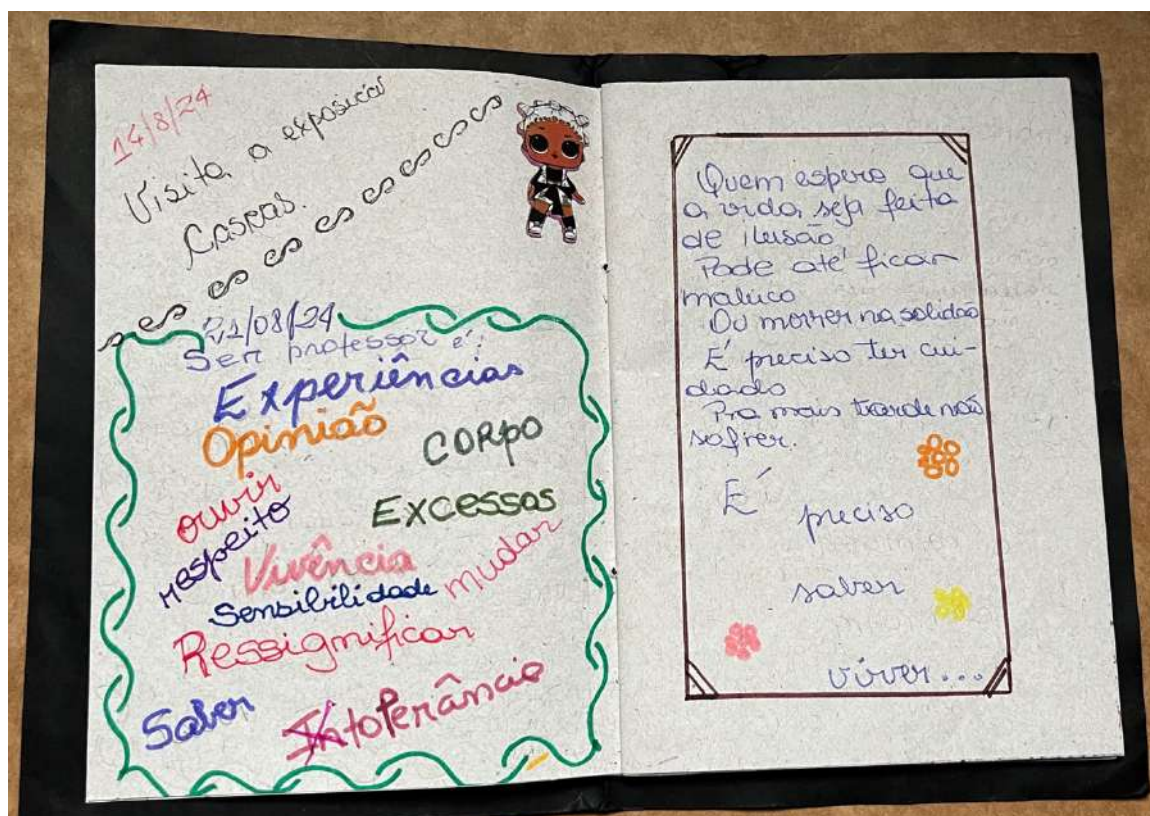 14/8/24
Visita a exposição
Caspas.
21/08/24
Ser professor é:
Experiências
Opinião
CORPO
ouvir
Excessos
respeito
Vivência
mudar
Sensibilidade
Ressignificar
Saber
Intolerância
Quem espera que
a vida seja feita
de ilusão
Pode até ficar
maluco
Ou morrer na solidão
É preciso ter cui-
dado
Pra mais tarde não
sofrer.
É
preciso
saber
viver...